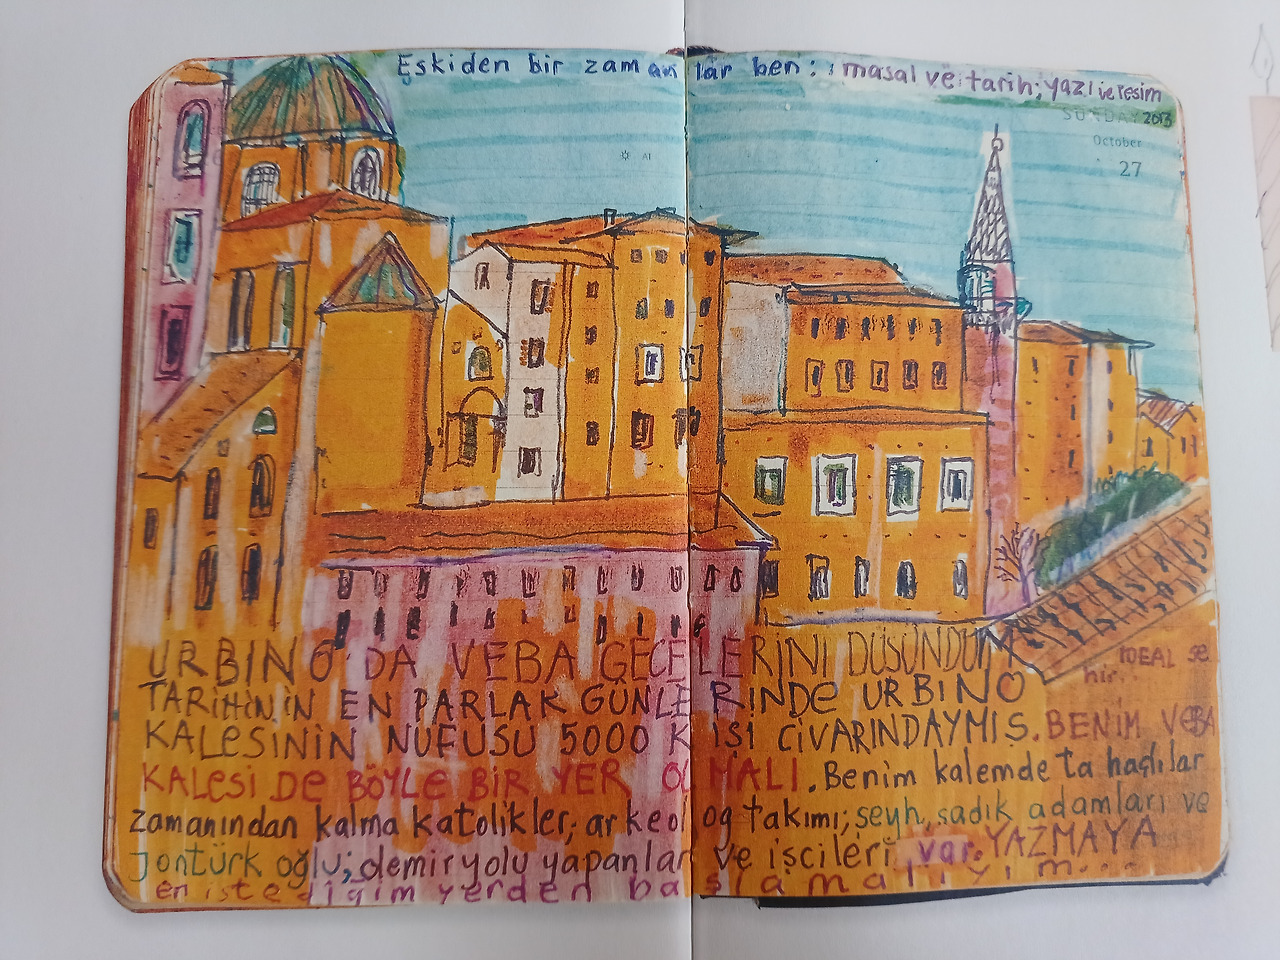 Eskiden bir zamanlar ben: masal ve tarih; yazı ve resim
SUNDAY 2013
October
27
URBINO'DA VEBA GECELERİNİ DÜŞÜNDÜM
IDEAL şe
hir..
TARiHiNiN EN PARLAK GÜNLERİNDE URBINO
KALESİNİN NÜFUSU 5000 KİŞİ CİVARINDAYMIŞ. BENİM VEBA
KALESİ DE BÖYLE BİR YER OLMALI. Benim kalemde ta haçlılar
zamanından kalma katolikler; arkeolog takımı; şeyh, sadık adamları ve
Jöntürk oğlu; demiryolu yapanlar ve işçileri var. YAZMAYA
en istediğim yerden başlamalıyım....